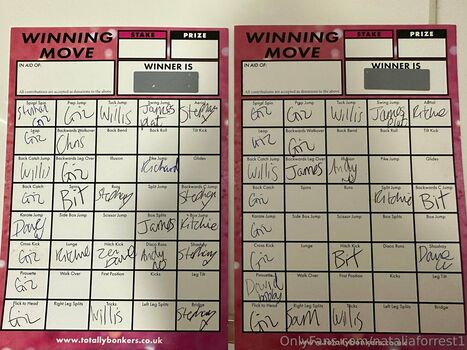 WINNING MOVE
STAKE
PRIZE
IN AID OF:
WINNER IS
All contributions are accepted as donations to the above
Spiral Spin Pike Jump Tuck Jump Swing Jump
Giz Willis James Stephen
Leap Backwards Walkover Back Bend Back Roll Tilt Kick
Giz Chris
Back Catch Jump Backwards Leg Over Illusion Pike Jump Glides
Willis Giz Richard
Back Catch Spins Runs Split Jump Backwards C Jump
Giz Bit Stephen Stephen
Karate Jump Side Box Jump Scissor Jump Box Splits Back Jump
Dave James Ritchie
Cross Kick Lunge Hitch Kick Disco Runs Shashay
Giz Ritchie Dave Andy Stephen
Pirouette Walk Over First Position Kicks Leg Tilt
Giz
Flick to Head Right Leg Splits Tricks Left Leg Splits Bridge
Giz Willis Stephen
www.totallybonkers.co.uk
WINNING MOVE
STAKE
PRIZE
IN AID OF:
WINNER IS
All contributions are accepted as donations to the above
Spiral Spin Pike Jump Tuck Jump Swing Jump
Giz Giz Willis James Ritchie
Leap Backwards Walkover Back Bend Back Roll Tilt Kick
Giz Giz
Back Catch Jump Backwards Leg Over Illusion Pike Jump Glides
Willis James Andy
Back Catch Spins Runs Split Jump Backwards C Jump
Giz Ritchie Bit
Karate Jump Side Box Jump Scissor Jump Box Splits Back Jump
Giz
Cross Kick Lunge Hitch Kick Disco Runs Shashay
Giz Bit Dave
Pirouette Walk Over First Position Kicks Leg Tilt
David
Flick to Head Right Leg Splits Tricks Left Leg Splits Bridge
Giz Sam Willis
www.totallybonkers.co.uk
OnlyFans.com/nataliaforrest1